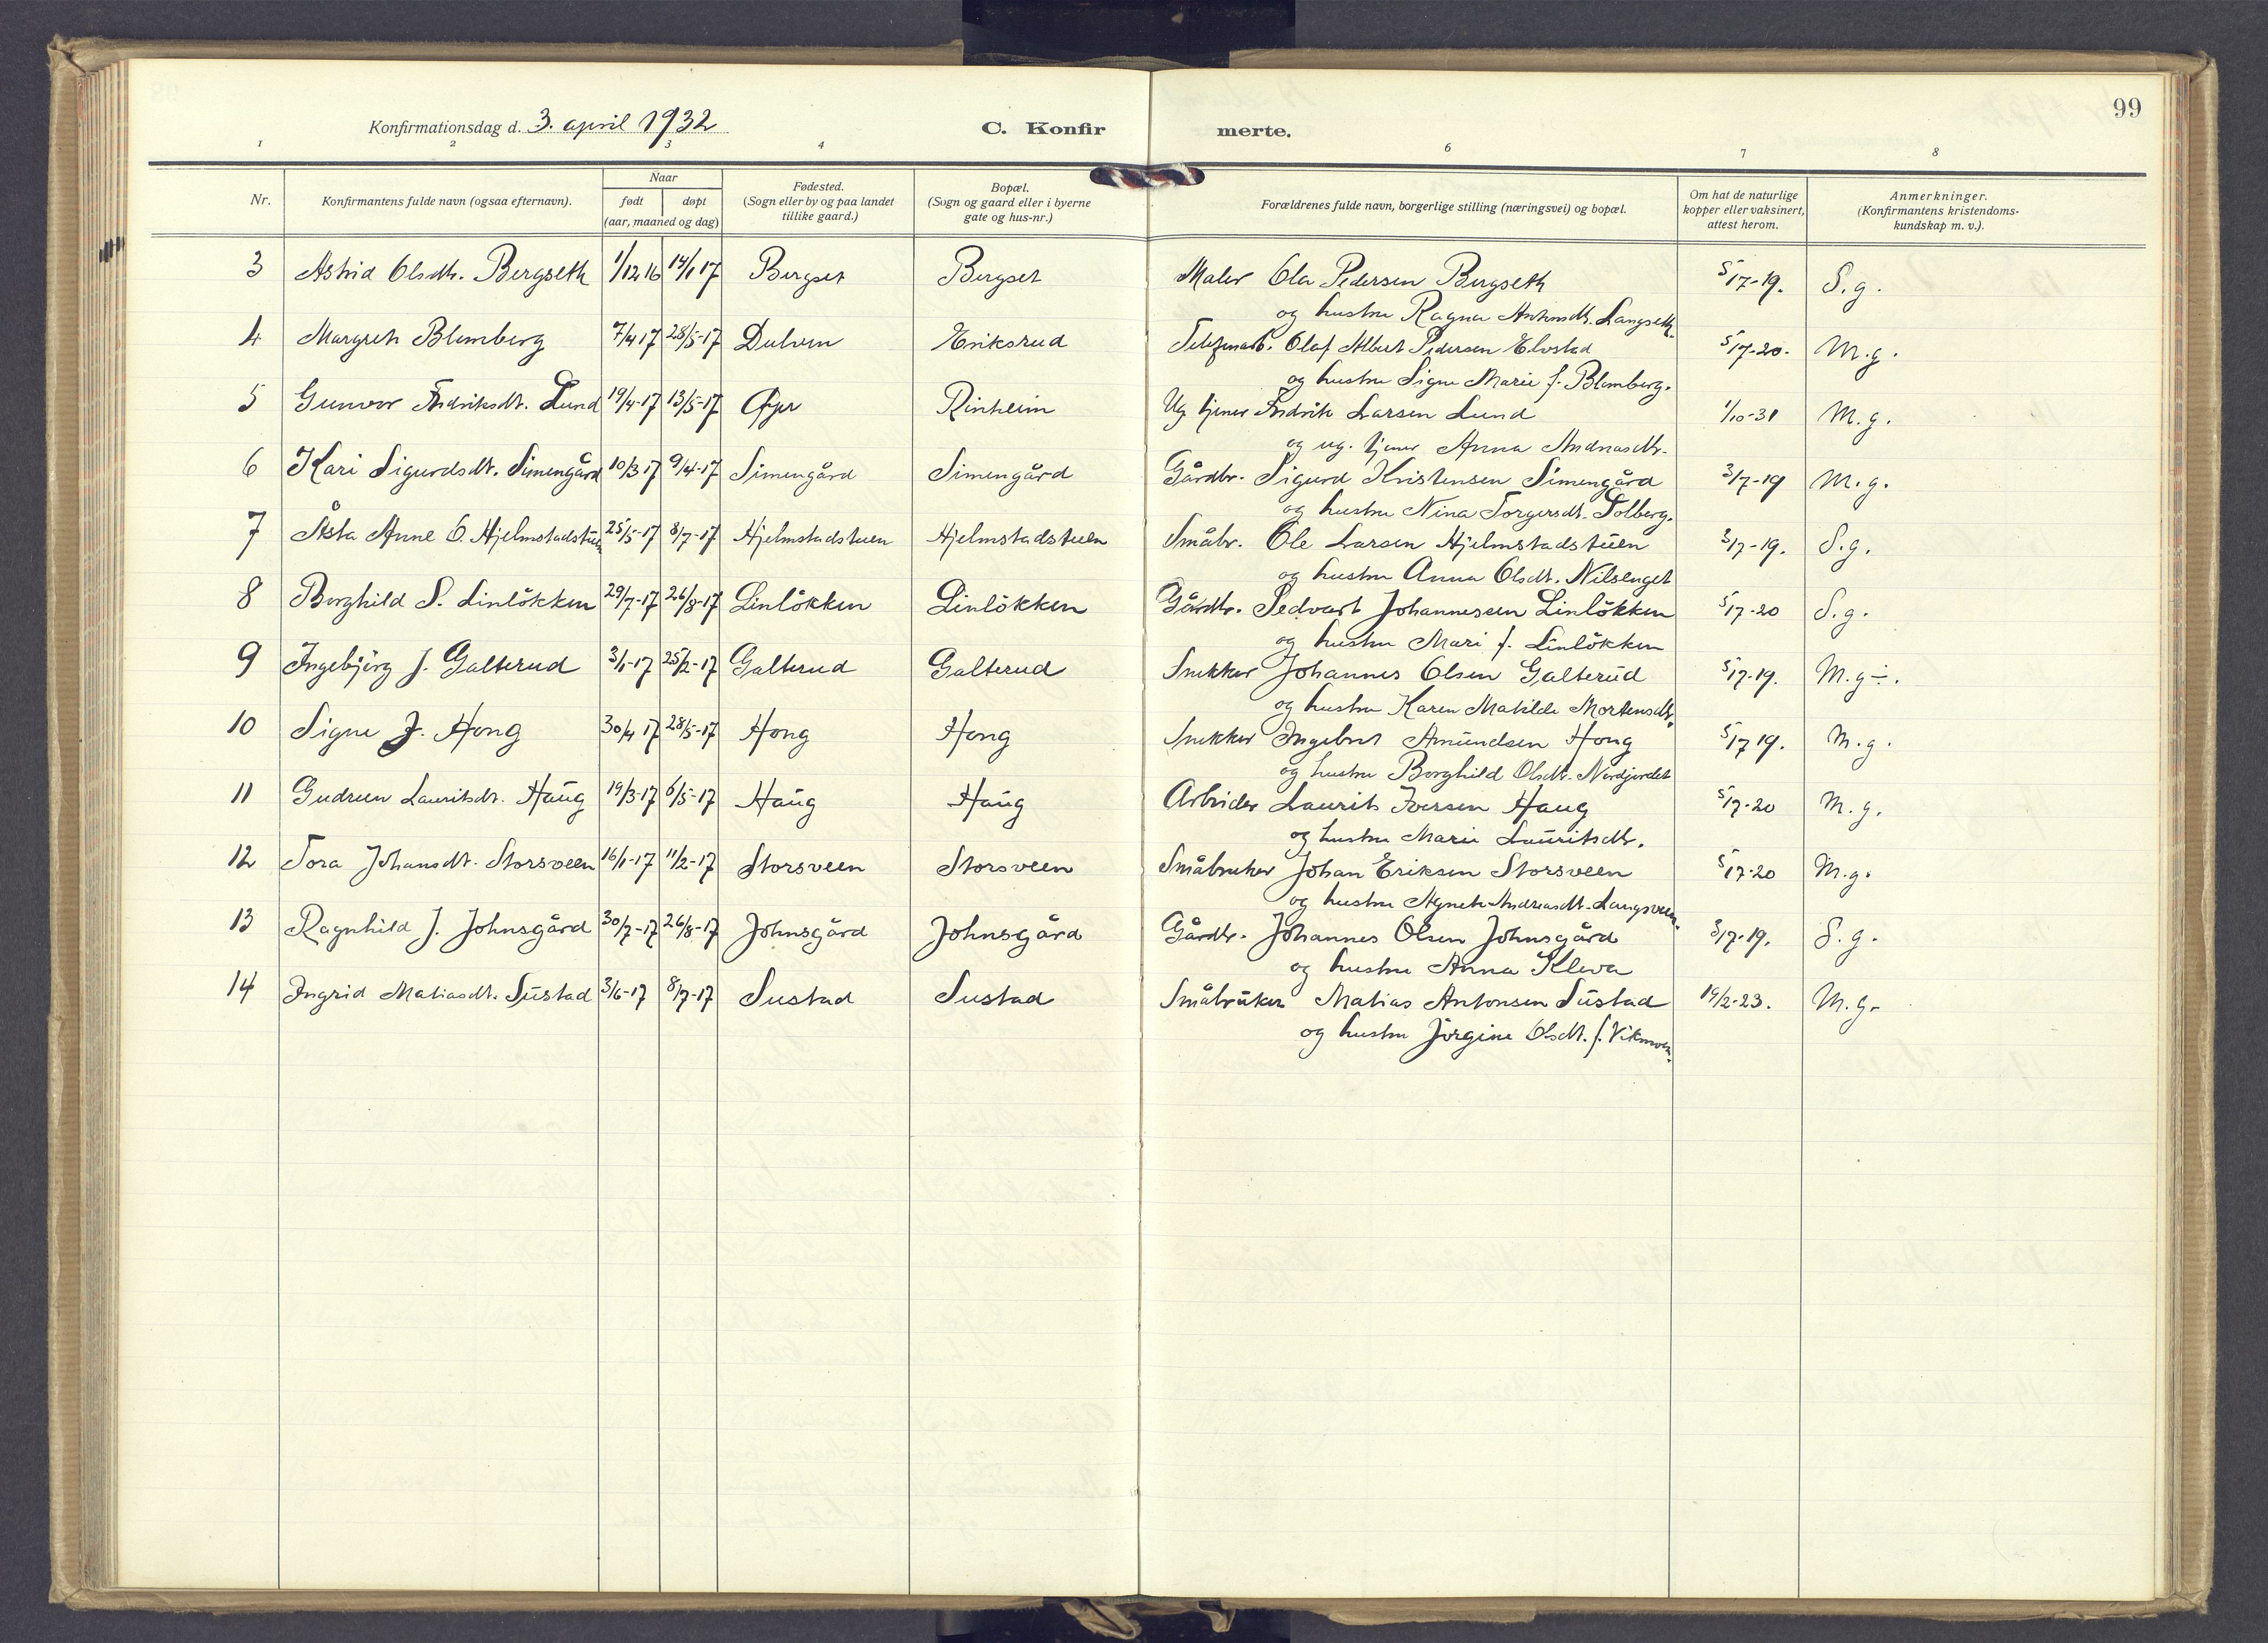 99
Konfirmationsdag d. 3. april 1932
C. Konfir merte.
1 2 3 4 6 7 8
Nr.
Konfirmantens fulde navn (ogsaa efternavn).
Naar
født døpt
(aar, maaned og dag)
Fødested.
(Sogn eller by og paa landet
tillike gaard.)
Bopæl.
(Sogn og gaard eller i byerne
gate og hus-nr.)
Forældrenes fulde navn, borgerlige stilling (næringsvei) og bopæl.
Om hat de naturlige
kopper eller vaksinert,
attest herom.
Anmerkninger.
(Konfirmantens kristendoms-
kundskap m. v.).
3 Astrid Olsdtr. Bergseth 1/12 16 14/1 17 Bergset Bergset Maler Ola Pedersen Bergseth 5/7-19. S.g.
og hustru Ragna Antonsdtr. Langseth.
4 Margreth Blomberg 7/4 17 28/5-17 Dulven Eriksrud Telefonarb. Olaf Albert Pedersen Elvstad 5/7-20. M.g.
og hustru Signe Marie f. Blomberg.
5 Gunvor Fredriksdt. Lund 19/4-17 13/5-17 Rinheim Ug tjener Fredrik Larsen Lund 1/10-31 M.g.
og ug. tjener Anna Andreasdtr.
6 Kari Sigurdsdt. Simengård 10/3 17 9/4-17 Simengård Simengård Gårdbr. Sigurd Kristensen Simengård 3/7-19 M.g.
og hustru Nina Torgersdt. Solberg.
7 Åsta Anne O. Hjelmstadstuen 25/5-17 8/7-17 Hjelmstadstuen Hjelmstadstuen Småbr. Ole Larsen Hjelmstadstuen 3/7-19. S.g.
og hustru Anna Olsdt. Nilsenget
8 Borghild S. Linlökken 29/7-17 26/8-17 Linlökken Linlökken Gårdbr. Sedvart Johannessen Linlökken 5/7-20 S.g.
og hustru Mari f. Linlökken
9 Ingebjörg J. Galterud 3/1-17 25/2-17 Galterud Galterud Snekker Johannes Olsen Galterud 5/7-19. M.g÷.
og hustru Karen Matilde Mortensdtr.
10 Signe J. Hong 30/4 17 28/5-17 Hong Hong Snekker Ingebret Amundsen Hong 5/7 19. M.g.
og hustru Borghild Olsdt. Nordjordet
11 Gudrun Lauritsdt. Haug 19/3-17 6/5-17 Haug Haug Arbeider Laurits Iversen Haug 5/7-20 M.g.
og hustru Marie Lauritsdtr.
12 Tora Johansdt. Storsveen 16/1-17 11/2-17 Storsveen Storsveen Småbruker Johan Eriksen Storsveen 5/7-20 M.g.
og hustru Agnete Andreasdt. Langsveen.
13 Ragnhild J. Johnsgård 30/7-17 26/8-17 Johnsgård Johnsgård Gårdbr. Johannes Olsen Johnsgård 3/7-19. S.g.
og hustru Anna Kleva
14 Ingrid Matiasdt. Sustad 3/6-17 8/7-17 Sustad Sustad Småbruker Matias Antonsen Sustad 19/2-23. M.g.
og hustru Jörgine Olsdt. f. Vikmoen.